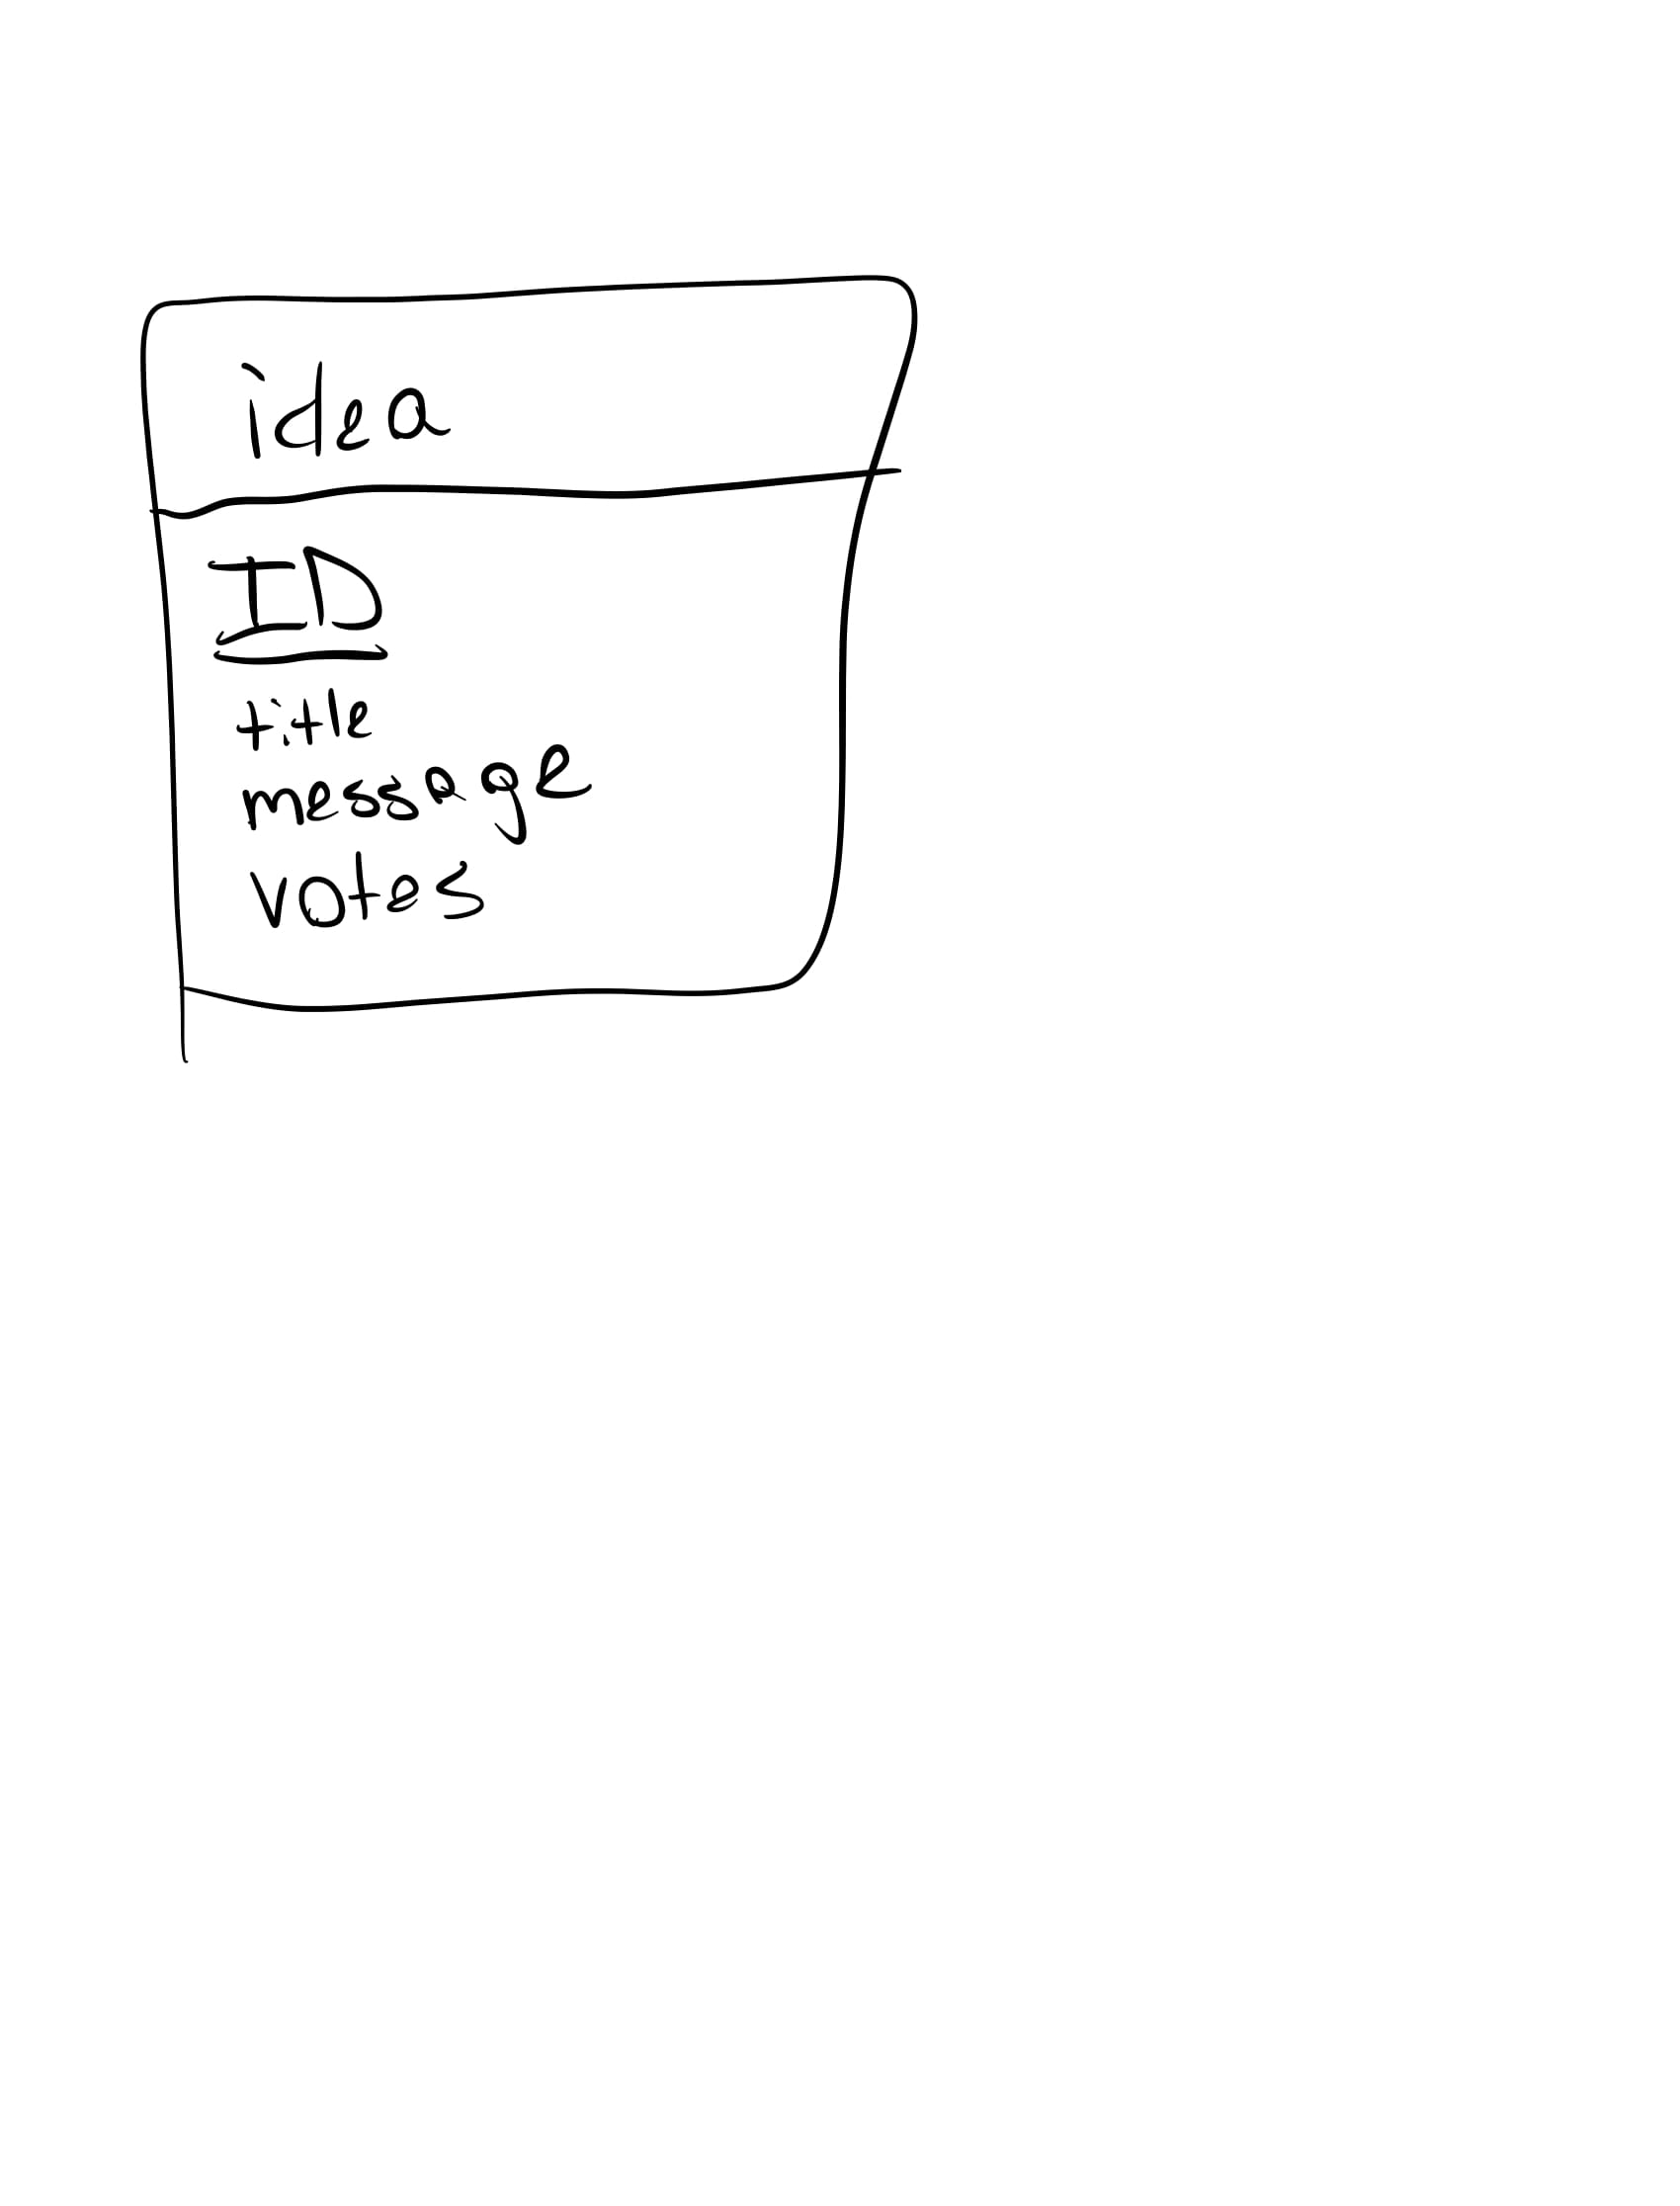 idea
ID
title
message
votes